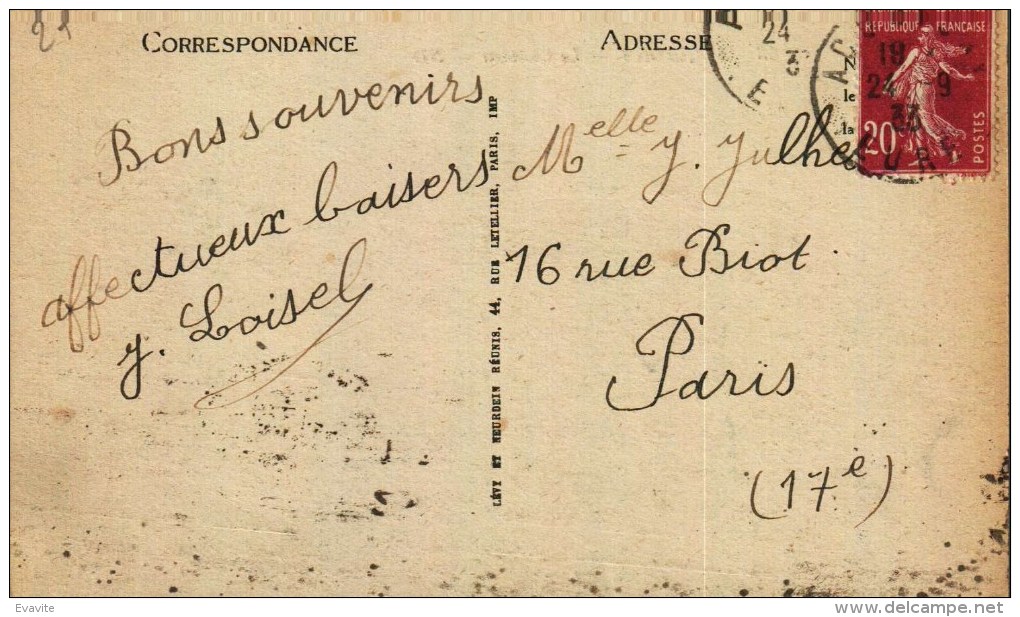 27
CORRESPONDANCE
Bons souvenirs
affectueux baisers
y. Loisel
LÉVY ET NEURDEIN RÉUNIS, 44, RUE LETELLIER, PARIS, IMP
ADRESSE
N
le
la
24
3
E
RÉPUBLIQUE FRANÇAISE
19
24 - 9
33
20c
POSTES
EURE
Melle y. Julhe
16 rue Biot.
Paris
(17e)
Evavite
delcampe.net